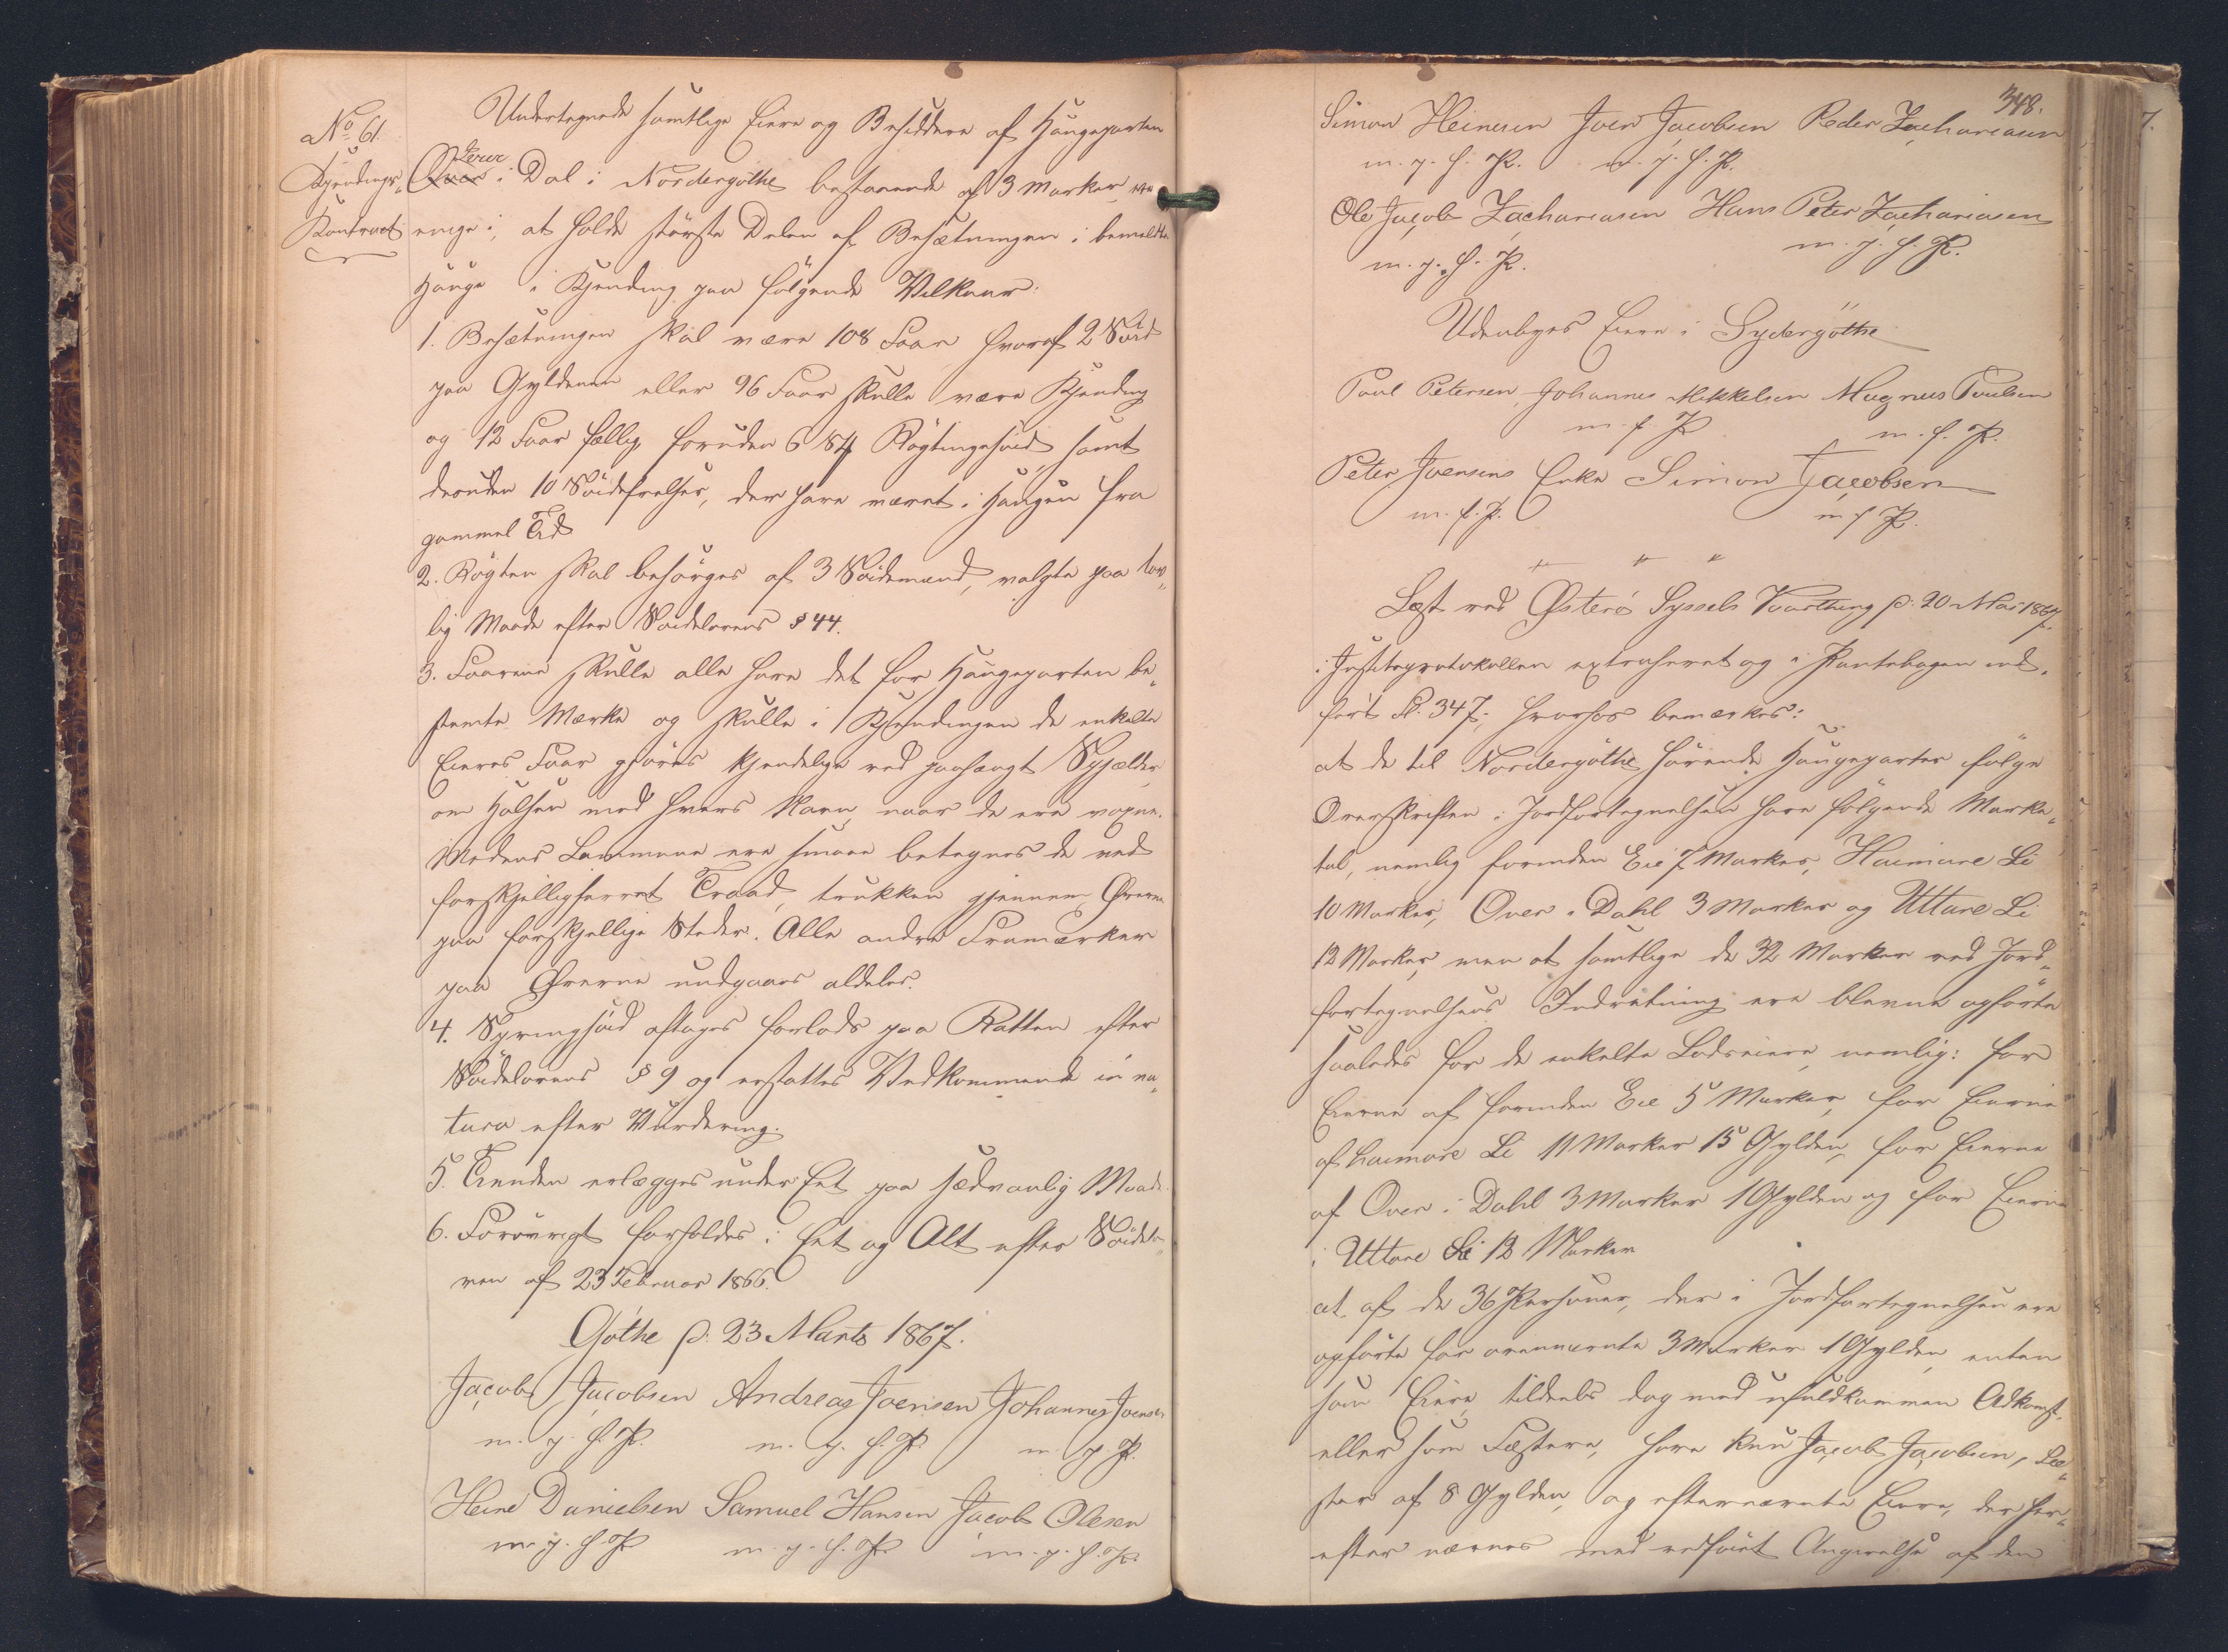 No 61.
Kjendings-
Kontract
Undertegnede samtlige Eiere og Besiddere af Haugeparten
Över i Dal i Nordergöthe bestaaende af 3 Marker, ere
enige i, at holde störste Delen af Besætningen i bemeldte
Hauge i Kjending paa fölgende Vilkaar:
1. Besætningen skal være 108 Faar hvoraf 2 Söid
paa Gyldenen eller 96 Faar skulle være Kjending
og 12 Faar fællig foruden 6 Stk Rögtingssöid samt
desuden 10 Söidefrelser, der have været i Haugen fra
gammel Tid
2. Rögten skal besörges af 3 Söidemænd, valgte paa lov-
lig Maade efter Söidelovens § 44.
3. Faarene skulle alle have det for Haugeparten be-
stemte Mærke og skulle i Kjendingen de enkelte
Eieres Faar gjöres kjendelige ved paahængt Spjælder
om Halsen med hvers Navn, naar de ere voxne.
Medens Lammene ere smaae betegnes de ved
forskjelligfarvet Traad, trukken gjennem Örerne
paa forskjellige Steder. Alle andre Framærker
paa Ørerne undgaaes aldeles.
4. Springsöid aftages forlods paa Rætten efter
Söidelovens § 9 og erstattes Vedkommende in na-
tura efter Vurdering.
5. Tienden erlægges under Eet paa sædvanlig Maade.
6. Forövrigt forholdes i Eet og Alt efter Söidelo-
ven af 23 Februar 1866.
Göthe p: 23 Marts 1867.
Jacob Jacobsen Andreas Joensen Johannes Joensen
m. p. f. P. m. p. f. P. m. p. P.
Heine Danielsen Samuel Hansen Jacob Olesen
m. p. f. P. m. p. f. P. m. p. f. P.
348.
Simon Heinesen Joen Jacobsen Peder Zachariasen
m. p. f. P. m. p. f. P.
Ole Jacob Zachariasen Hans Peter Zachariasen
m. p. f. P. m. p. f. P.
Udenbyes Eiere i Sydergöthe
Poul Petersen, Johannes Mikkelsen Magnus Poulsen
m. f. P. m. f. P.
Peter Joensens Enke Simon Jacobsen
m. f. P. m f P.
Læst ved Österö Syssels Vaarthing p: 20 Mai 1867,
i Justitsprotokollen extraheret og i Pantebogen ind-
fört Fol. 347; hvorhos bemærkes:
at de til Nordergöthe hörende Haugeparter fölge
Overskriften i Jordfortegnelsen have fölgende Marke-
tal, nemlig forinden Eie 7 Marker, Haimare Li
10 Marker, Over i Dahl 3 Marker og Uttare Li
12 Marker, men at samtlige de 32 Marker ved Jord-
fortegnelsens Indretning ere blevne opförte
saaledes for de enkelte Lodseiere, nemlig: for
Eierne af forinden Eie 5 Marker, for Eierne
af haimare Li 11 Marker 15 Gylden, for Eierne
af Over i Dahl 3 Marker 1 Gylden og for Eierne
i Uttare Li 12 Marker
at af de 36 Personer, der i Jordfortegnelsen ere
opförte for ovennævnte 3 Marker 1 Gylden enten
som Eiere tildeels dog med ufuldkommen Adkomst,
eller som Fæstere, have kun Jacob Jacobsen, Fæ-
ster af 8 Gylden, og efternævnte Eiere, der her-
efter nævnes med vedföiet Angivelse af den